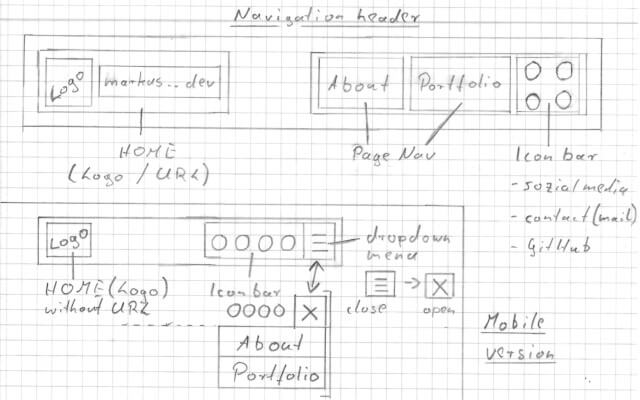 Navigation header
Logo
markus..dev
About
Portfolio
HOME
(Logo / URL)
Page Nav
Icon bar
- sozial media
- contact (mail)
- GitHub
Logo
dropdown
menu
HOME (Logo)
without URL
Icon bar
close
open
X
X
About
Portfolio
Mobile
version